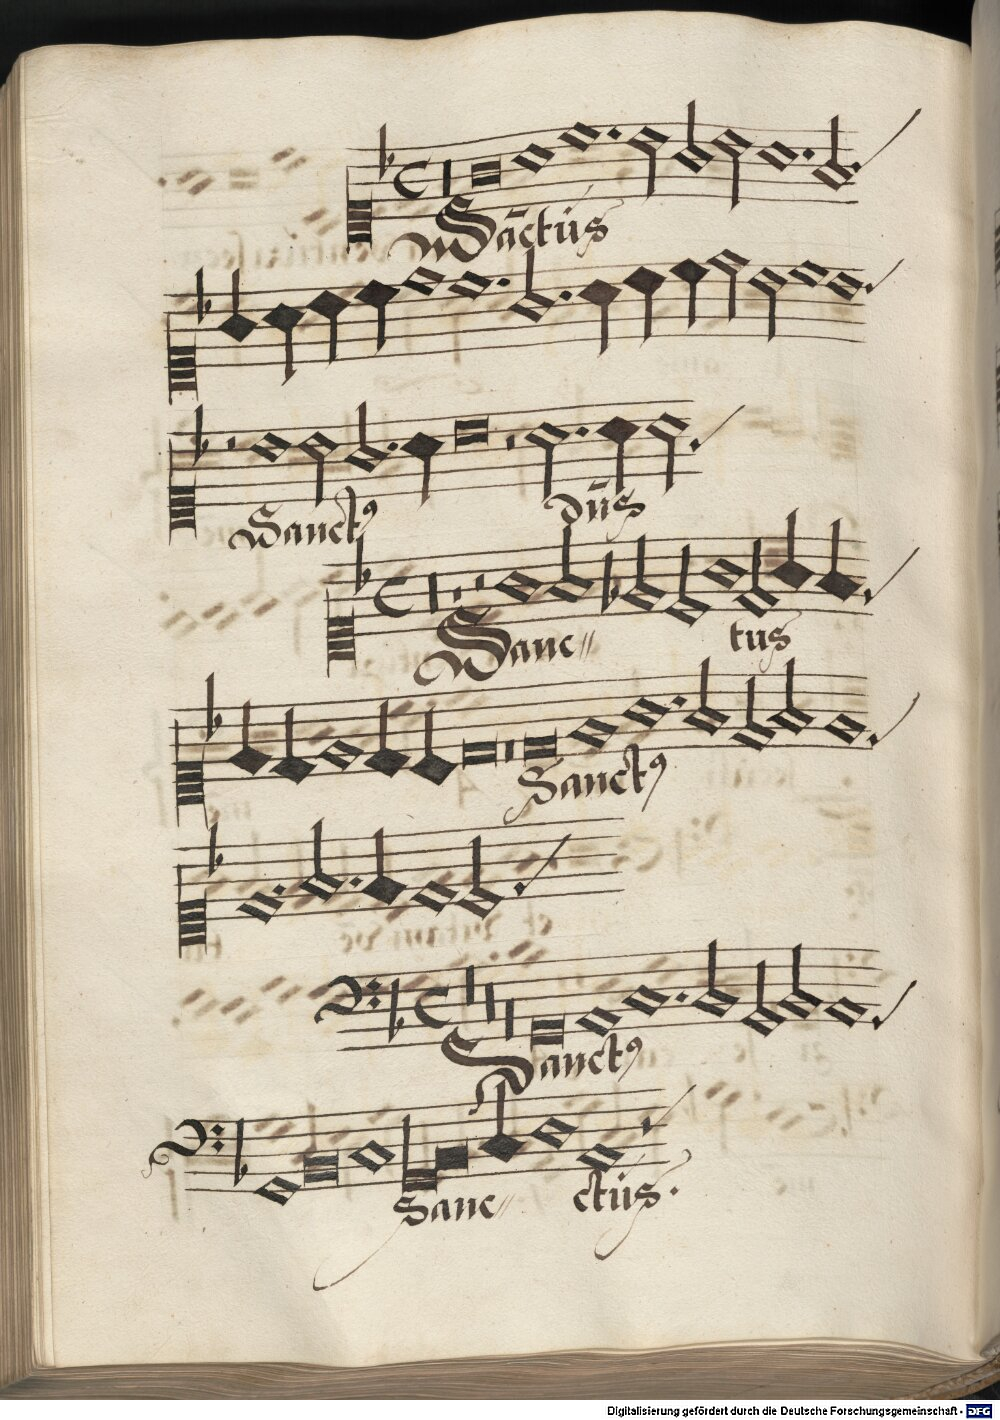 Sāctus
Sanctꝰ dūs
Sanc⸗ tus
Sanctꝰ
Sanctꝰ
Sanc⸗ ctus.
Digitalisierung gefördert durch die Deutsche Forschungsgemeinschaft - DFG